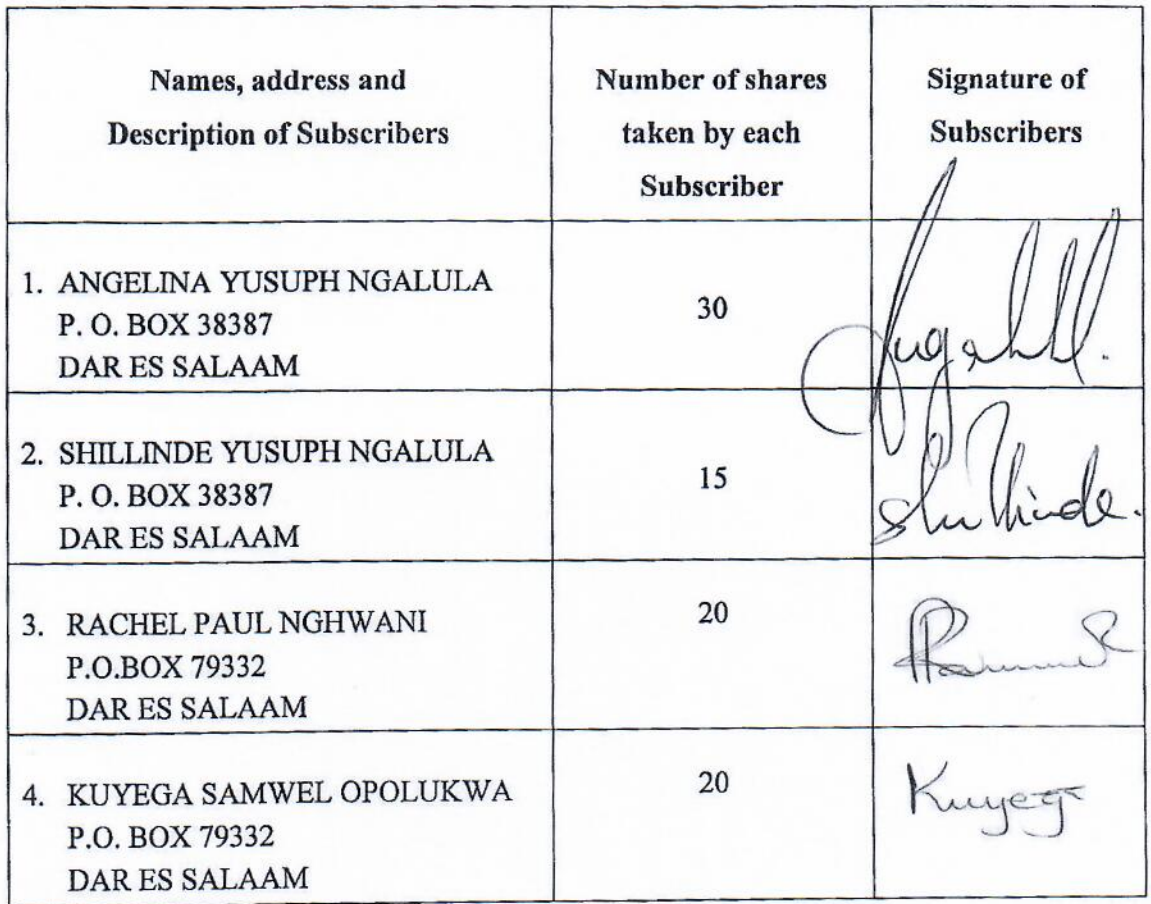 Names, address and
Description of Subscribers
Number of shares
taken by each
Subscriber
Signature of
Subscribers
1. ANGELINA YUSUPH NGALULA
P. O. BOX 38387
DAR ES SALAAM
30
2. SHILLINDE YUSUPH NGALULA
P. O. BOX 38387
DAR ES SALAAM
15
3. RACHEL PAUL NGHWANI
P.O.BOX 79332
DAR ES SALAAM
20
4. KUYEGA SAMWEL OPOLUKWA
P.O. BOX 79332
DAR ES SALAAM
20
Kuyega